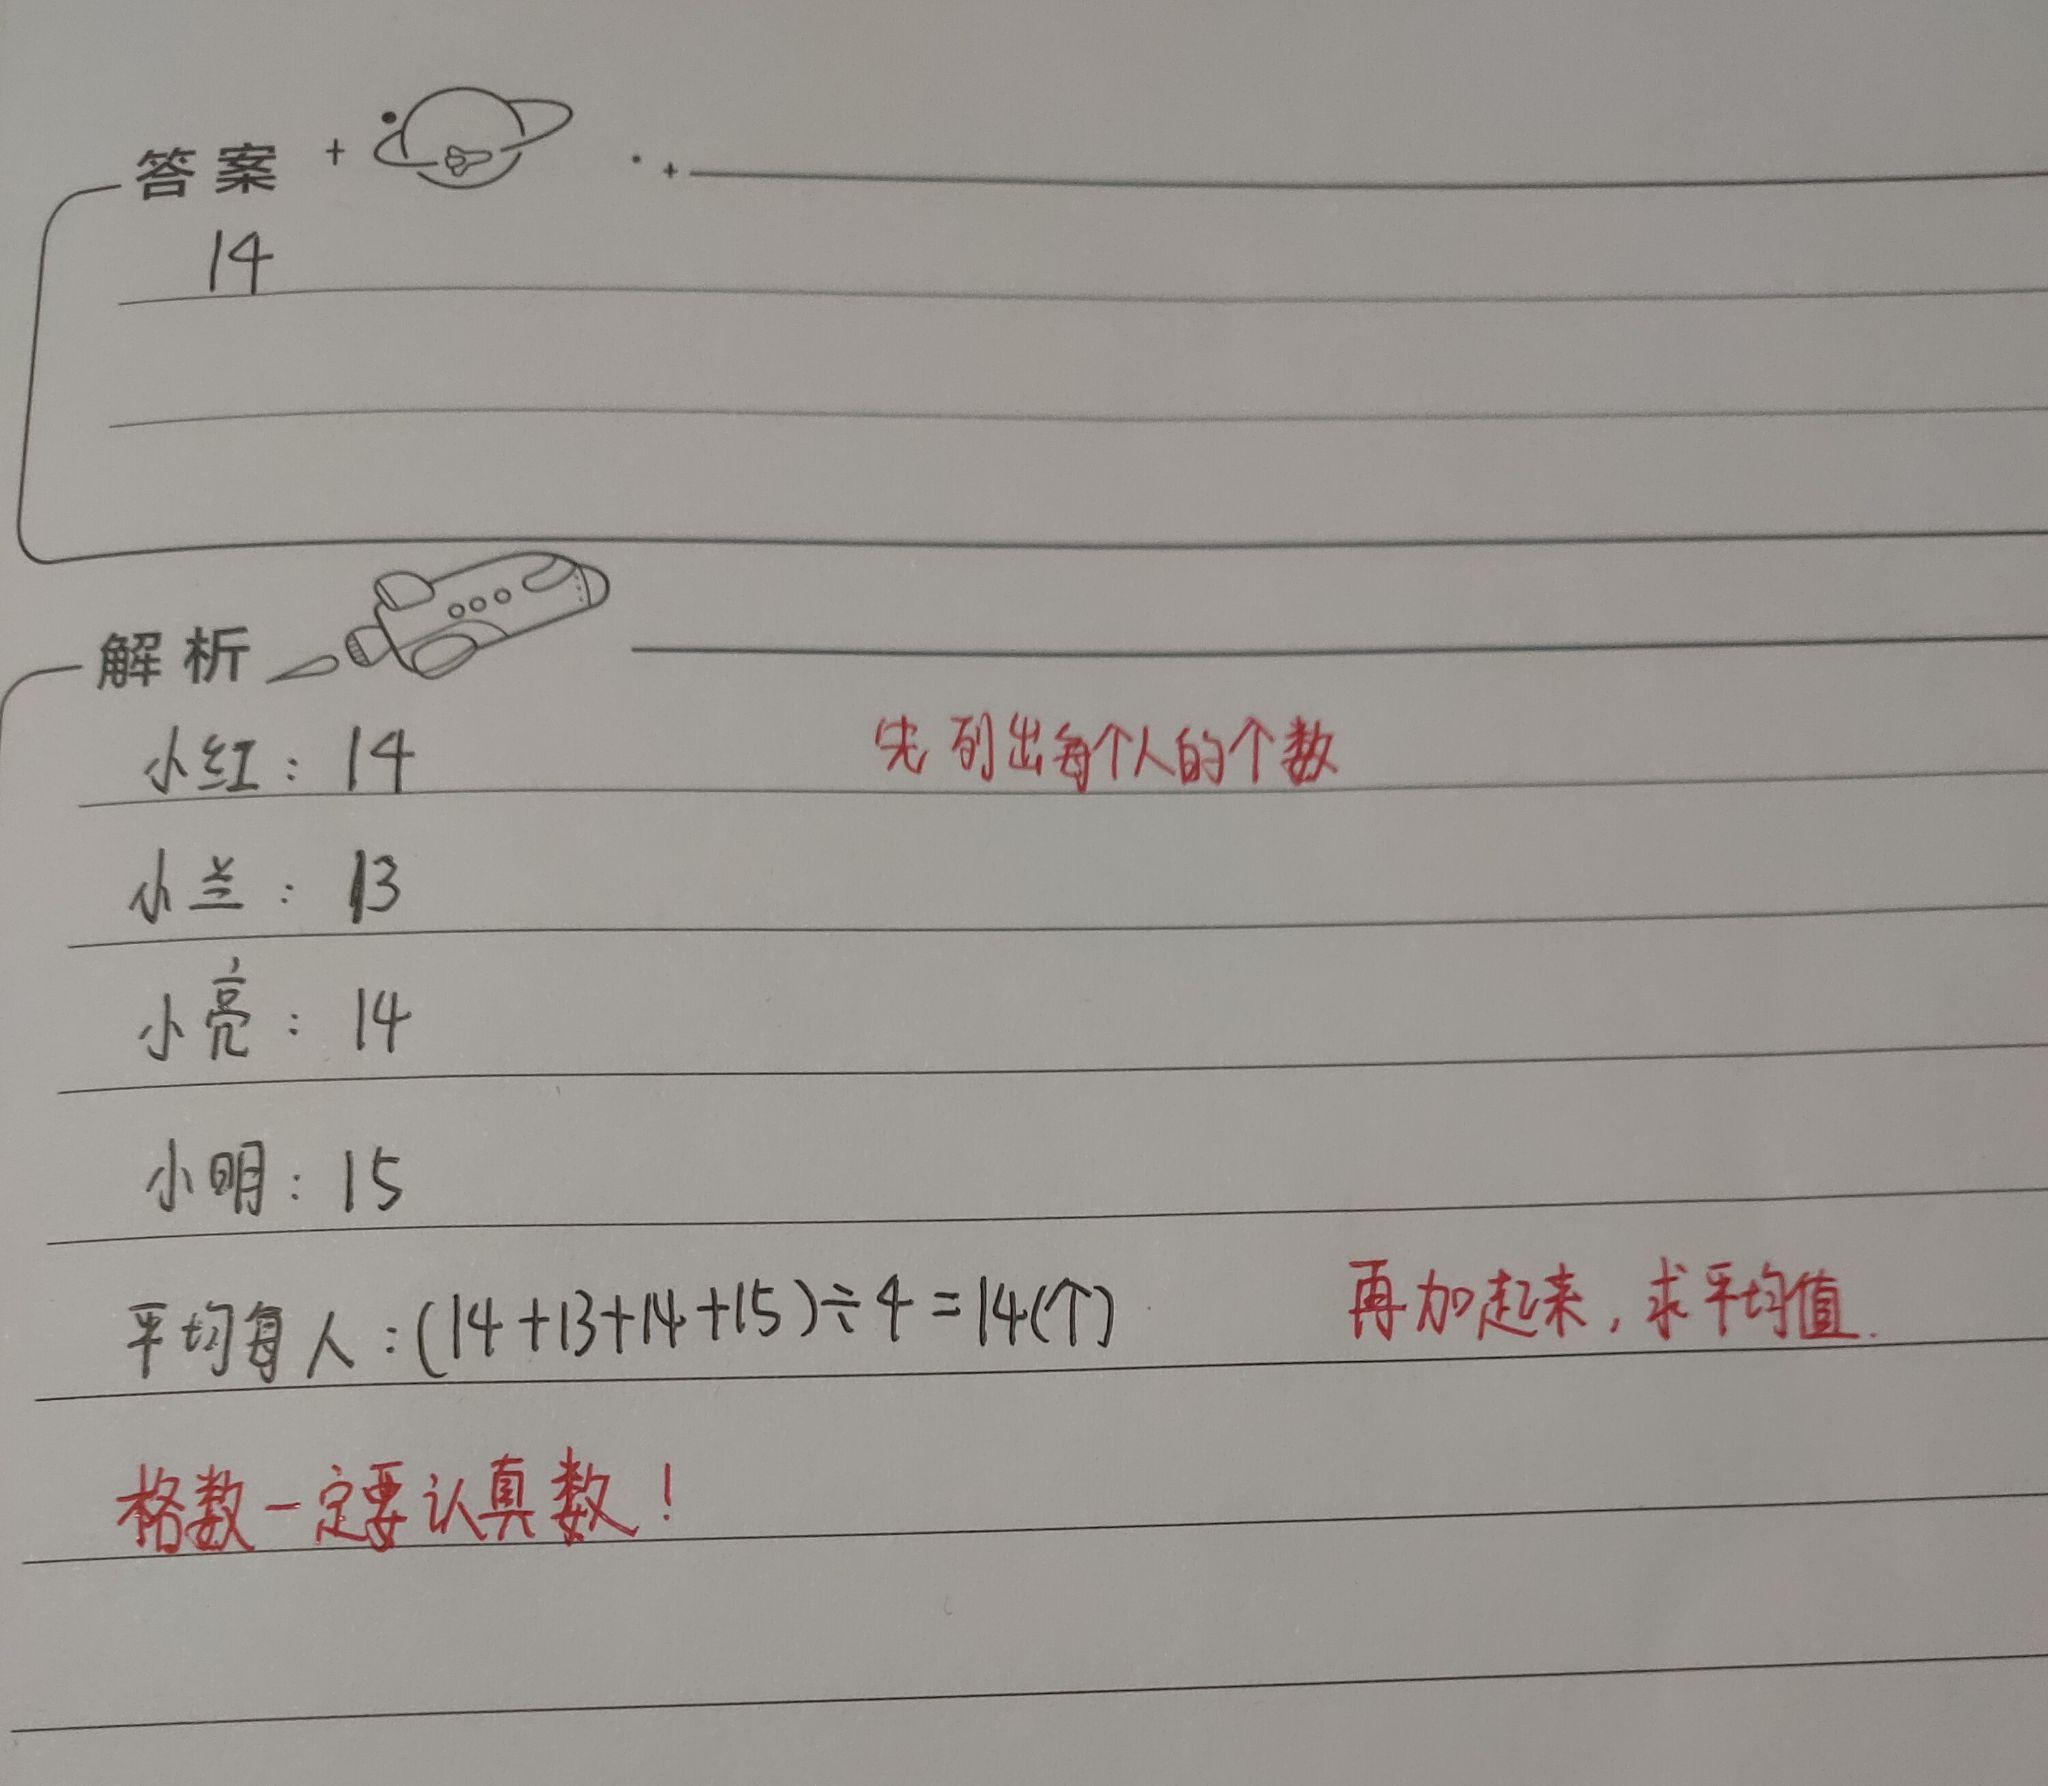 答案
14
解析
小红：14 先列出每个人的个数
小兰：13
小亮：14
小明：15
平均每人：(14+13+14+15)÷4=14(个) 再加起来，求平均值.
格数一定要认真数！